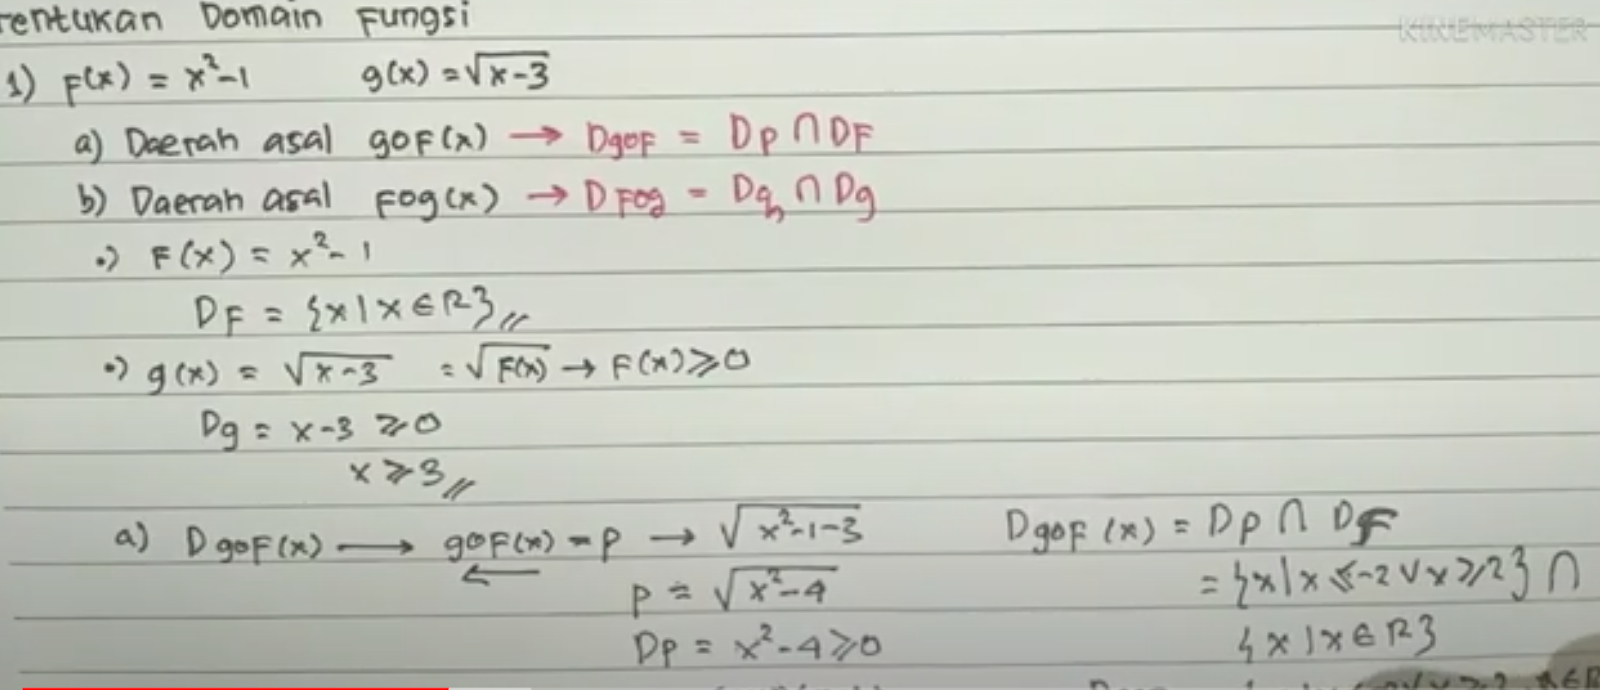 Tentukan Domain Fungsi
KINEMASTER
1) F(x) = x²-1 g(x) = √x-3
a) Daerah asal goF(x) → DgoF = Dp ∩ DF
b) Daerah asal Fog(x) → DFog = Dq ∩ Dg
•) F(x) = x²-1
DF = {x|x∈R}//
•) g(x) = √x-3 = √F(x) → F(x)≥0
Dg = x-3 ≥0
x≥3//
a) DgoF(x) → goF(x) = p → √x²-1-3
←
p = √x²-4
Dp = x²-4≥0
DgoF(x) = Dp ∩ DF
= {x|x≤-2 V x≥2} ∩
{x|x∈R}